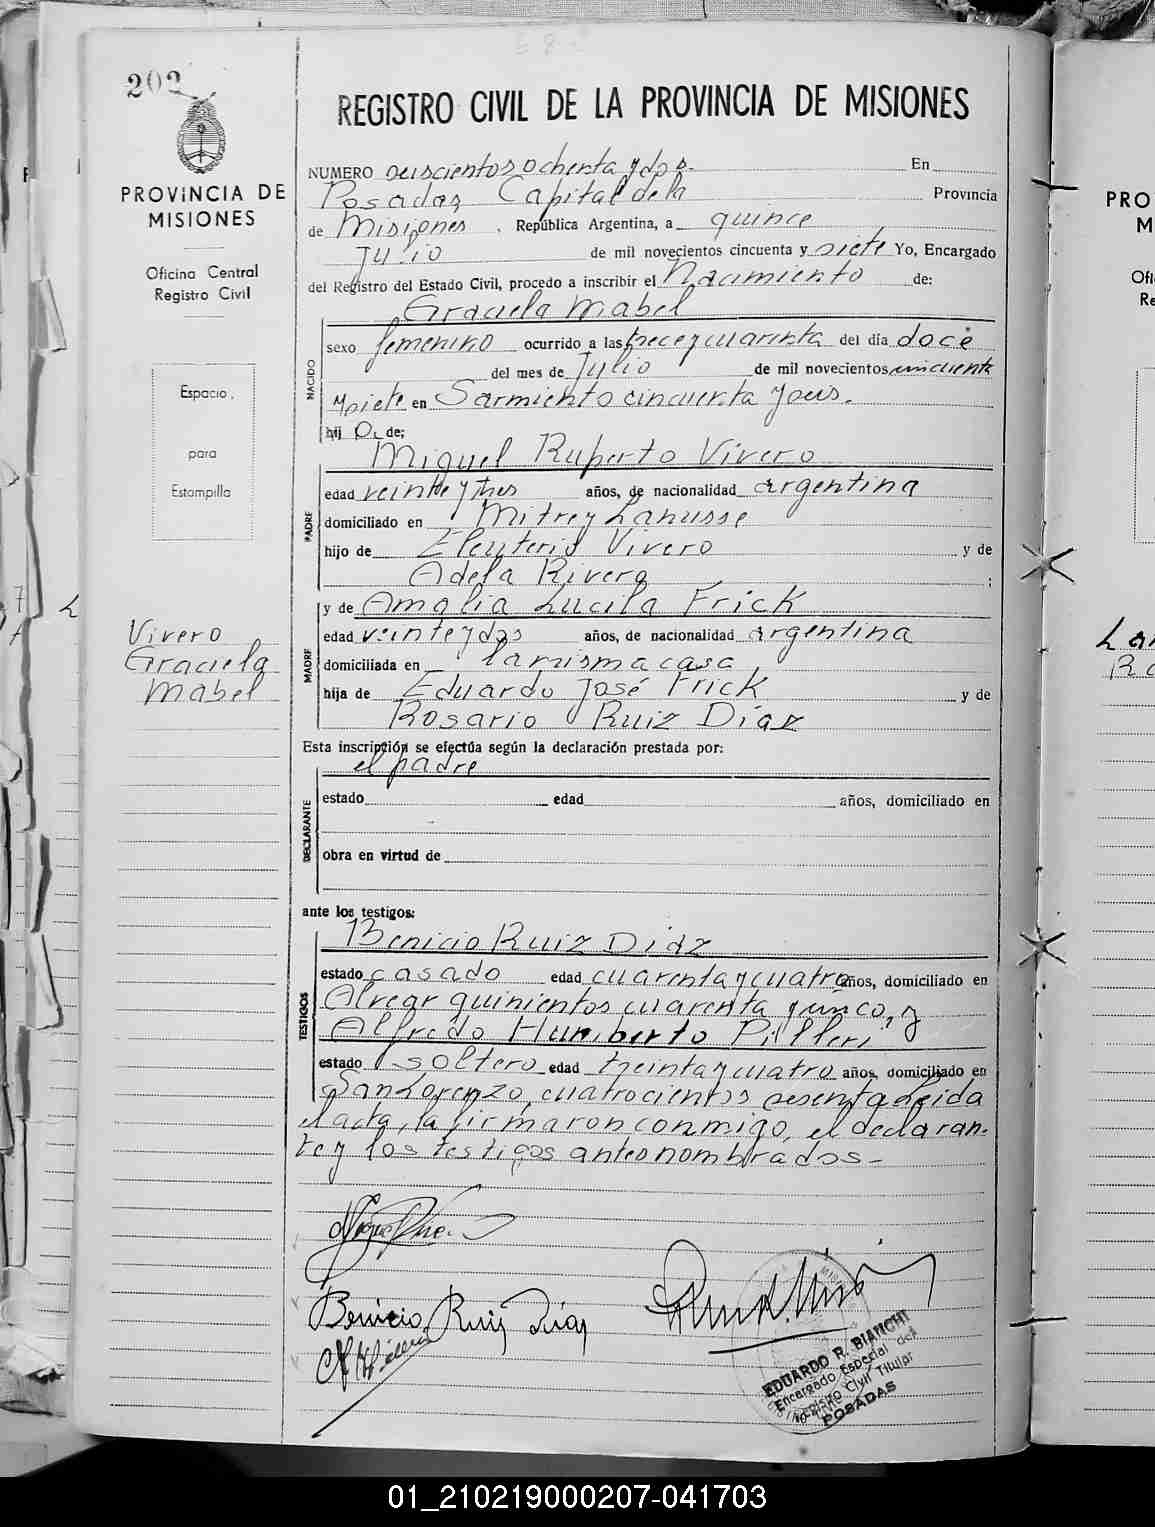 202
REGISTRO CIVIL DE LA PROVINCIA DE MISIONES
PROVINCIA DE
MISIONES
Oficina Central
Registro Civil
Espacio
para
Estampilla
Vivero
Graciela
Mabel
NUMERO seiscientos ochenta y dos. En
Posadas Capital de la Provincia
de Misiones, República Argentina, a quince
Julio de mil novecientos cincuenta y siete Yo, Encargado
del Registro del Estado Civil, procedo a inscribir el Nacimiento de:
Graciela Mabel
NACIDO
sexo femenino ocurrido a las trece y cuarenta del día doce
del mes de Julio de mil novecientos cincuenta
y siete en Sarmiento cincuenta y seis.
hij a. de;
Miguel Ruperto Vivero
PADRE
edad veinte y tres años, de nacionalidad argentina
domiciliado en Mitre y Lanusse
hijo de Eleuterio Vivero y de
Adela Rivero ;
y de Amalia Lucila Frick
MADRE
edad veinte y dos años, de nacionalidad argentina
domiciliada en la misma casa
hija de Eduardo José Frick y de
Rosario Ruiz Díaz
Esta inscripción se efectúa según la declaración prestada por:
el padre
DECLARANTE
estado edad años, domiciliado en
obra en virtud de
ante los testigos:
Benicio Ruiz Diaz
TESTIGOS
estado casado edad cuarenta y cuatro años, domiciliado en
Alvear quinientos cuarenta y cinco, y
Alfredo Humberto Pilleri
estado soltero edad treinta y cuatro años, domiciliado en
San Lorenzo, cuatrocientos sesenta Leida
el acta, la firmaron conmigo, el declaran-
te y los testigos antes nombrados-
Benicio Ruiz Díaz
EDUARDO R. BIANCHI
Encargado Especial del
Registro Civil Titular
POSADAS
PRO
M
Ofi
Re
01_210219000207-041703